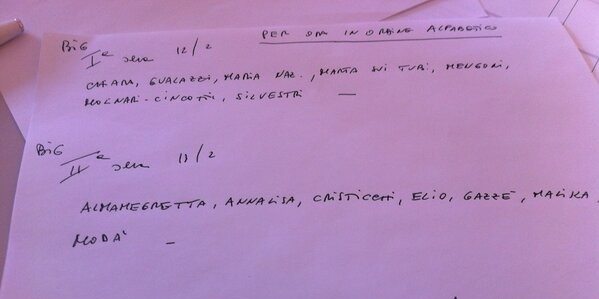 PER ORA IN ORDINE ALFABETICO
BIG
Iª sera 12/2
CHIARA, GUALAZZI, MARIA NAZ., MARTA SUI TUBI, MENGONI,
MOLINARI-CINCOTTI, SILVESTRI —
BIG
IIª sera 13/2
ALMAMEGRETTA, ANNALISA, CRISTICCHI, ELIO, GAZZÈ, MALIKA,
MODÀ —